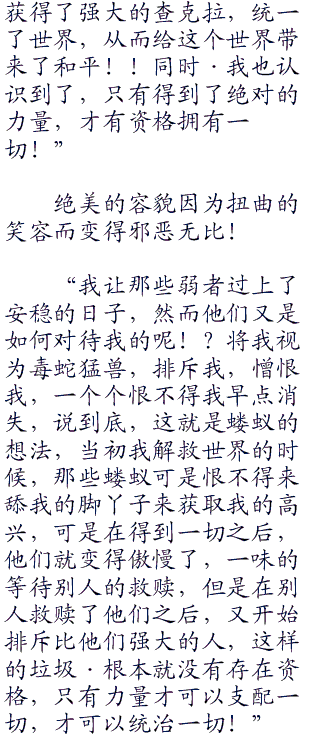 获得了强大的查克拉，统一
了世界，从而给这个世界带
来了和平！！同时·我也认
识到了，只有得到了绝对的
力量，才有资格拥有一
切！”
绝美的容貌因为扭曲的
笑容而变得邪恶无比！
“我让那些弱者过上了
安稳的日子，然而他们又是
如何对待我的呢！？将我视
为毒蛇猛兽，排斥我，憎恨
我，一个个恨不得我早点消
失，说到底，这就是蝼蚁的
想法，当初我解救世界的时
候，那些蝼蚁可是恨不得来
舔我的脚丫子来获取我的高
兴，可是在得到一切之后，
他们就变得傲慢了，一味的
等待别人的救赎，但是在别
人救赎了他们之后，又开始
排斥比他们强大的人，这样
的垃圾·根本就没有存在资
格，只有力量才可以支配一
切，才可以统治一切！”